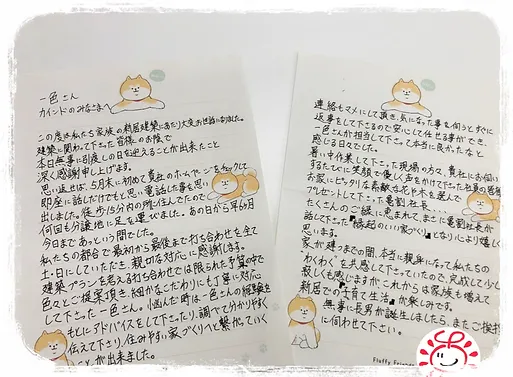 一色さん
カインドのみなさまへ
この度は私たち家族の新居建築にあたり大変お世話になりました。
建築に関わって下さった皆様のお陰で
本日無事に引渡しの日を迎えることが出来たこと
深く感謝申し上げます。
思い返せば、5月末に初めて貴社のホームページをチェックして
即座に話しだけでもと思い電話した事を思い
出しました。徒歩15分内の所に住んでたので
何回も分譲地に足を運びました。あの日から早6ヶ月
今日まであっという間でした。
私たちの都合で最初から最後まで打ち合わせを全て
土・日にしていただき、親切な対応に感謝します。
建築プランを考える打ち合わせでは限られた予算の中で
色々とご提案頂き、細かなこだわりにも丁寧に対応
して下さった一色さん。悩んだ時は一色さんの経験を
もとにアドバイスをして下さったり、調べて分かりやすく
伝えて下さり、住みやすい家づくりへと繋がっていく
ことが出来ました。
連絡もマメにして頂き、気になった事を伺うとすぐに
返事をして下さるので安心して任せる事ができ、
一色さんが担当して下さって本当に良かったなと
感じる日々でした。
暑い中作業して下さった現場の方々、貴社にお伺い
するたびに笑顔で優しく声をかけて下さった社員の皆様
お家にピッタリな素敵な花や木を選んで
プレゼントして下さった亀割社長...
たくさんのご縁に恵まれて、まさに亀割社長が
話して下さった『縁起のいい家づくり』となりより嬉しく
思います。
家が建つまでの間、本当に親身になって私たちの
"わくわく"を共感して下さっていたので、完成して少し
寂しくも感じますが、これからは家族も増えて
新居での『子育て生活』が楽しみです。
無事に長男が誕生しましたら、またご挨拶
に伺わせて下さい。
Fluffy Frien